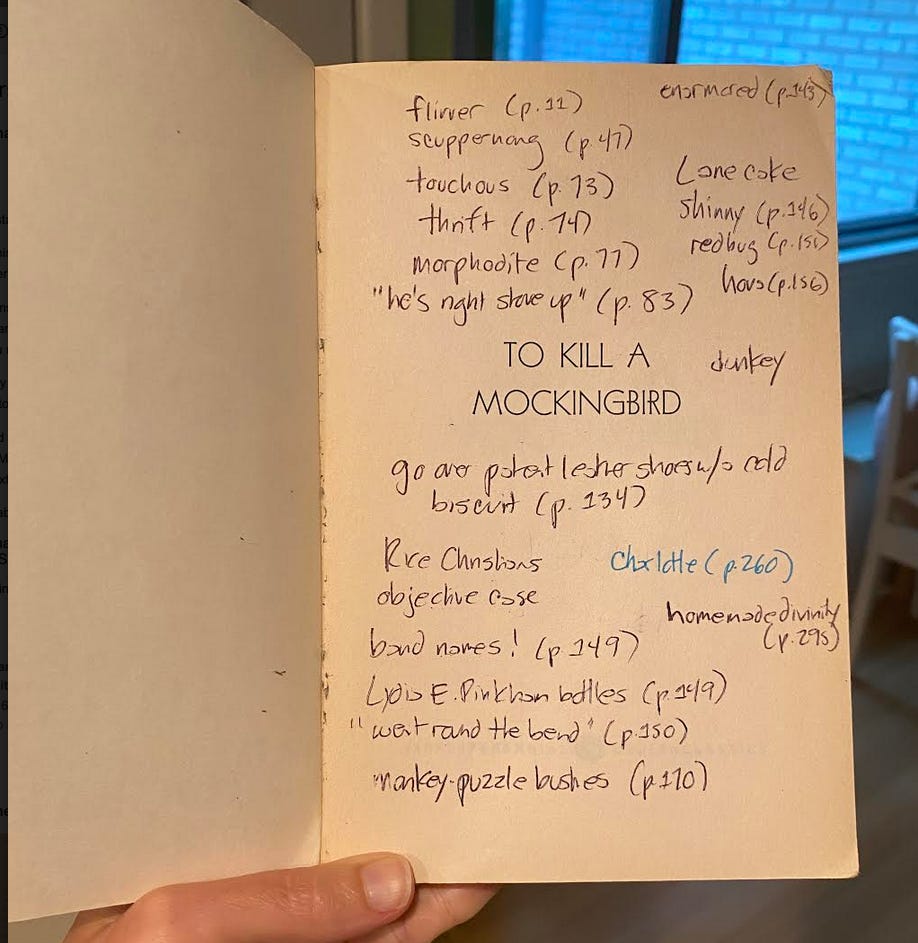 flivver (p.11)
enarmored (p.143)
scuppernong (p.47)
touchous (p.73)
Lane cake
thrift (p.74)
shinny (p.146)
morphodite (p.77)
redbug (p.151)
"he's right stove up" (p.83)
hovs (p.156)
TO KILL A
MOCKINGBIRD
dunkey
go over patent leather shoes w/a cold
biscuit (p.134)
Rice Christians
Charlotte (p.260)
objective case
homemade divinity
(p.295)
band names! (p.149)
Lydia E. Pinkham bottles (p.149)
"went round the bend" (p.150)
monkey-puzzle bushes (p.170)